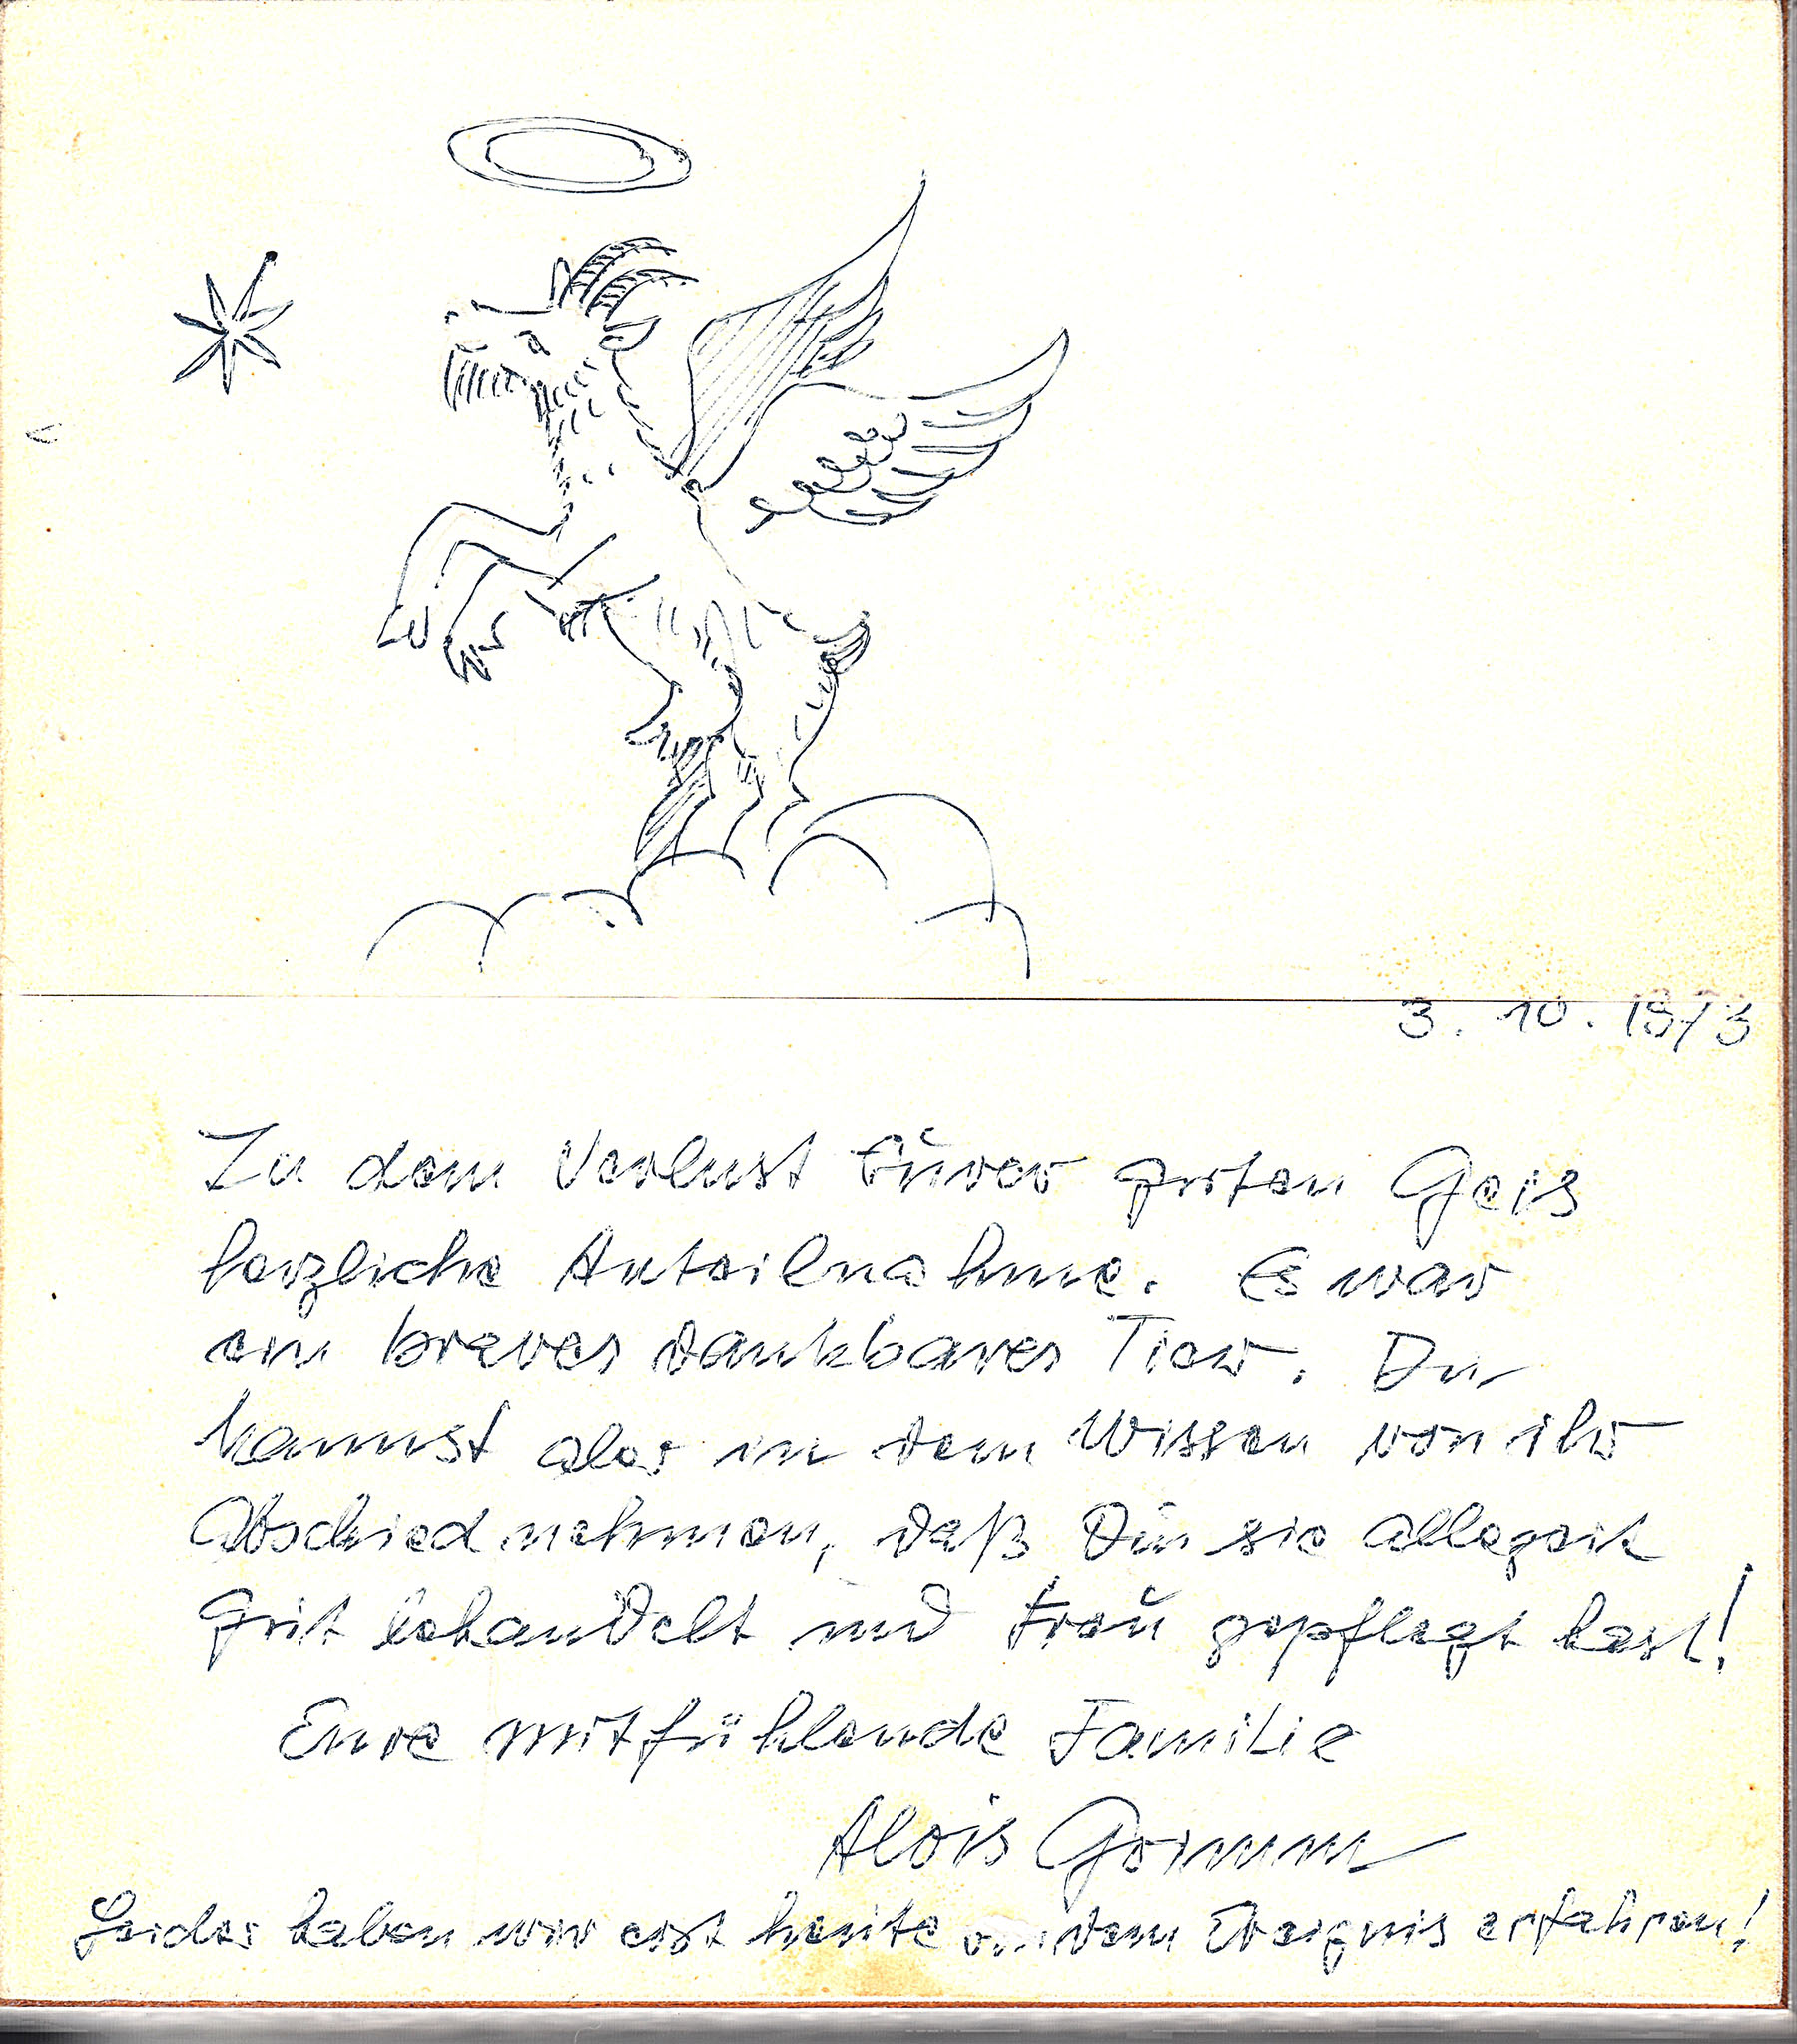 3. 10. 1973
Zu dem Verlust Eurer guten Geis
herzliche Anteilnahme. Es war
ein braves dankbares Tier. Du
kannst aber in dem Wissen von ihr
Abschied nehmen, daß Du sie allezeit
gut behandelt und treu gepflegt hast!
Eure mitfühlende Familie
Alois
Leider haben wir erst heute von dem Ereignis erfahren!